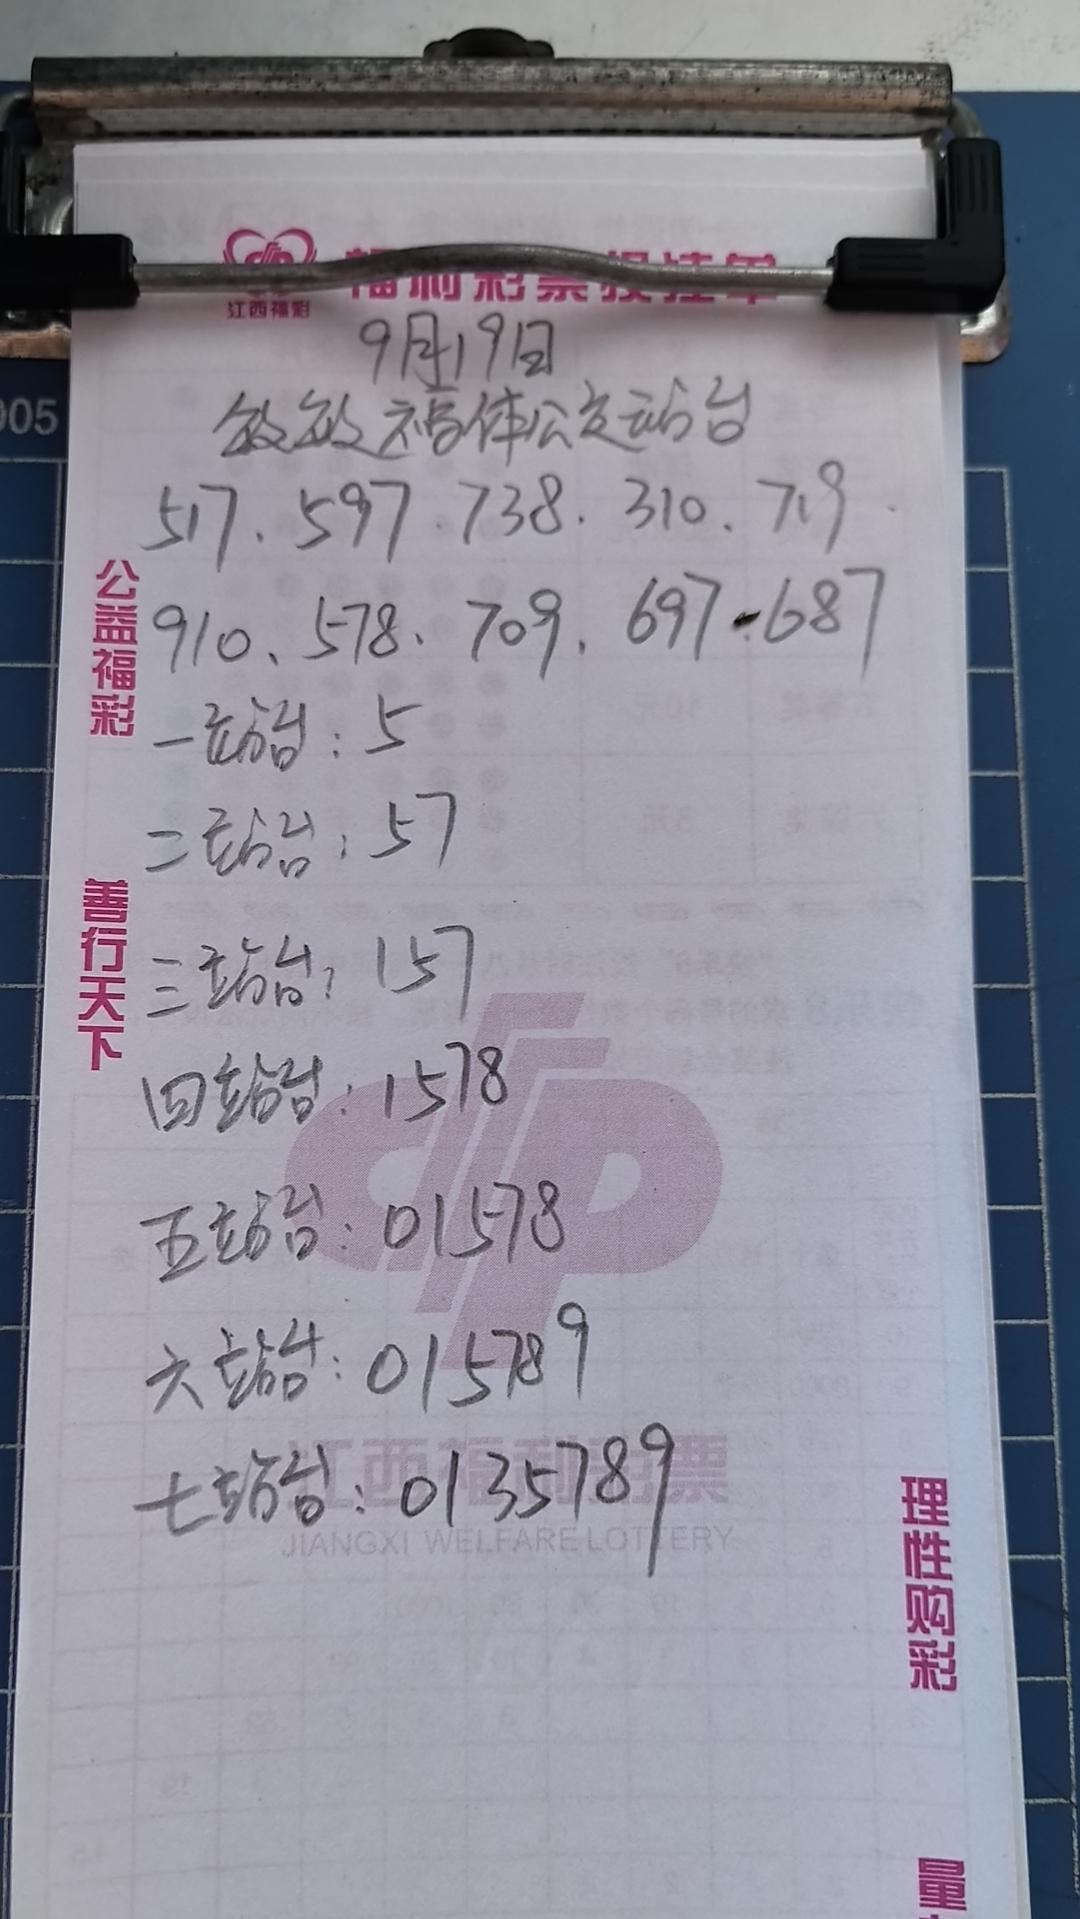 福利彩票投注单
江西福彩
9月19日
敏敏福体公交站台
517、597、738、310、719
910、578、709、697、687
005
公益福彩
一站台：5
二站台：57
善行天下
三站台：157
四站台：1578
五站台：01578
六站台：015789
七站台：0135789
江西福利彩票
JIANGXI WELFARE LOTTERY
理性购彩
量